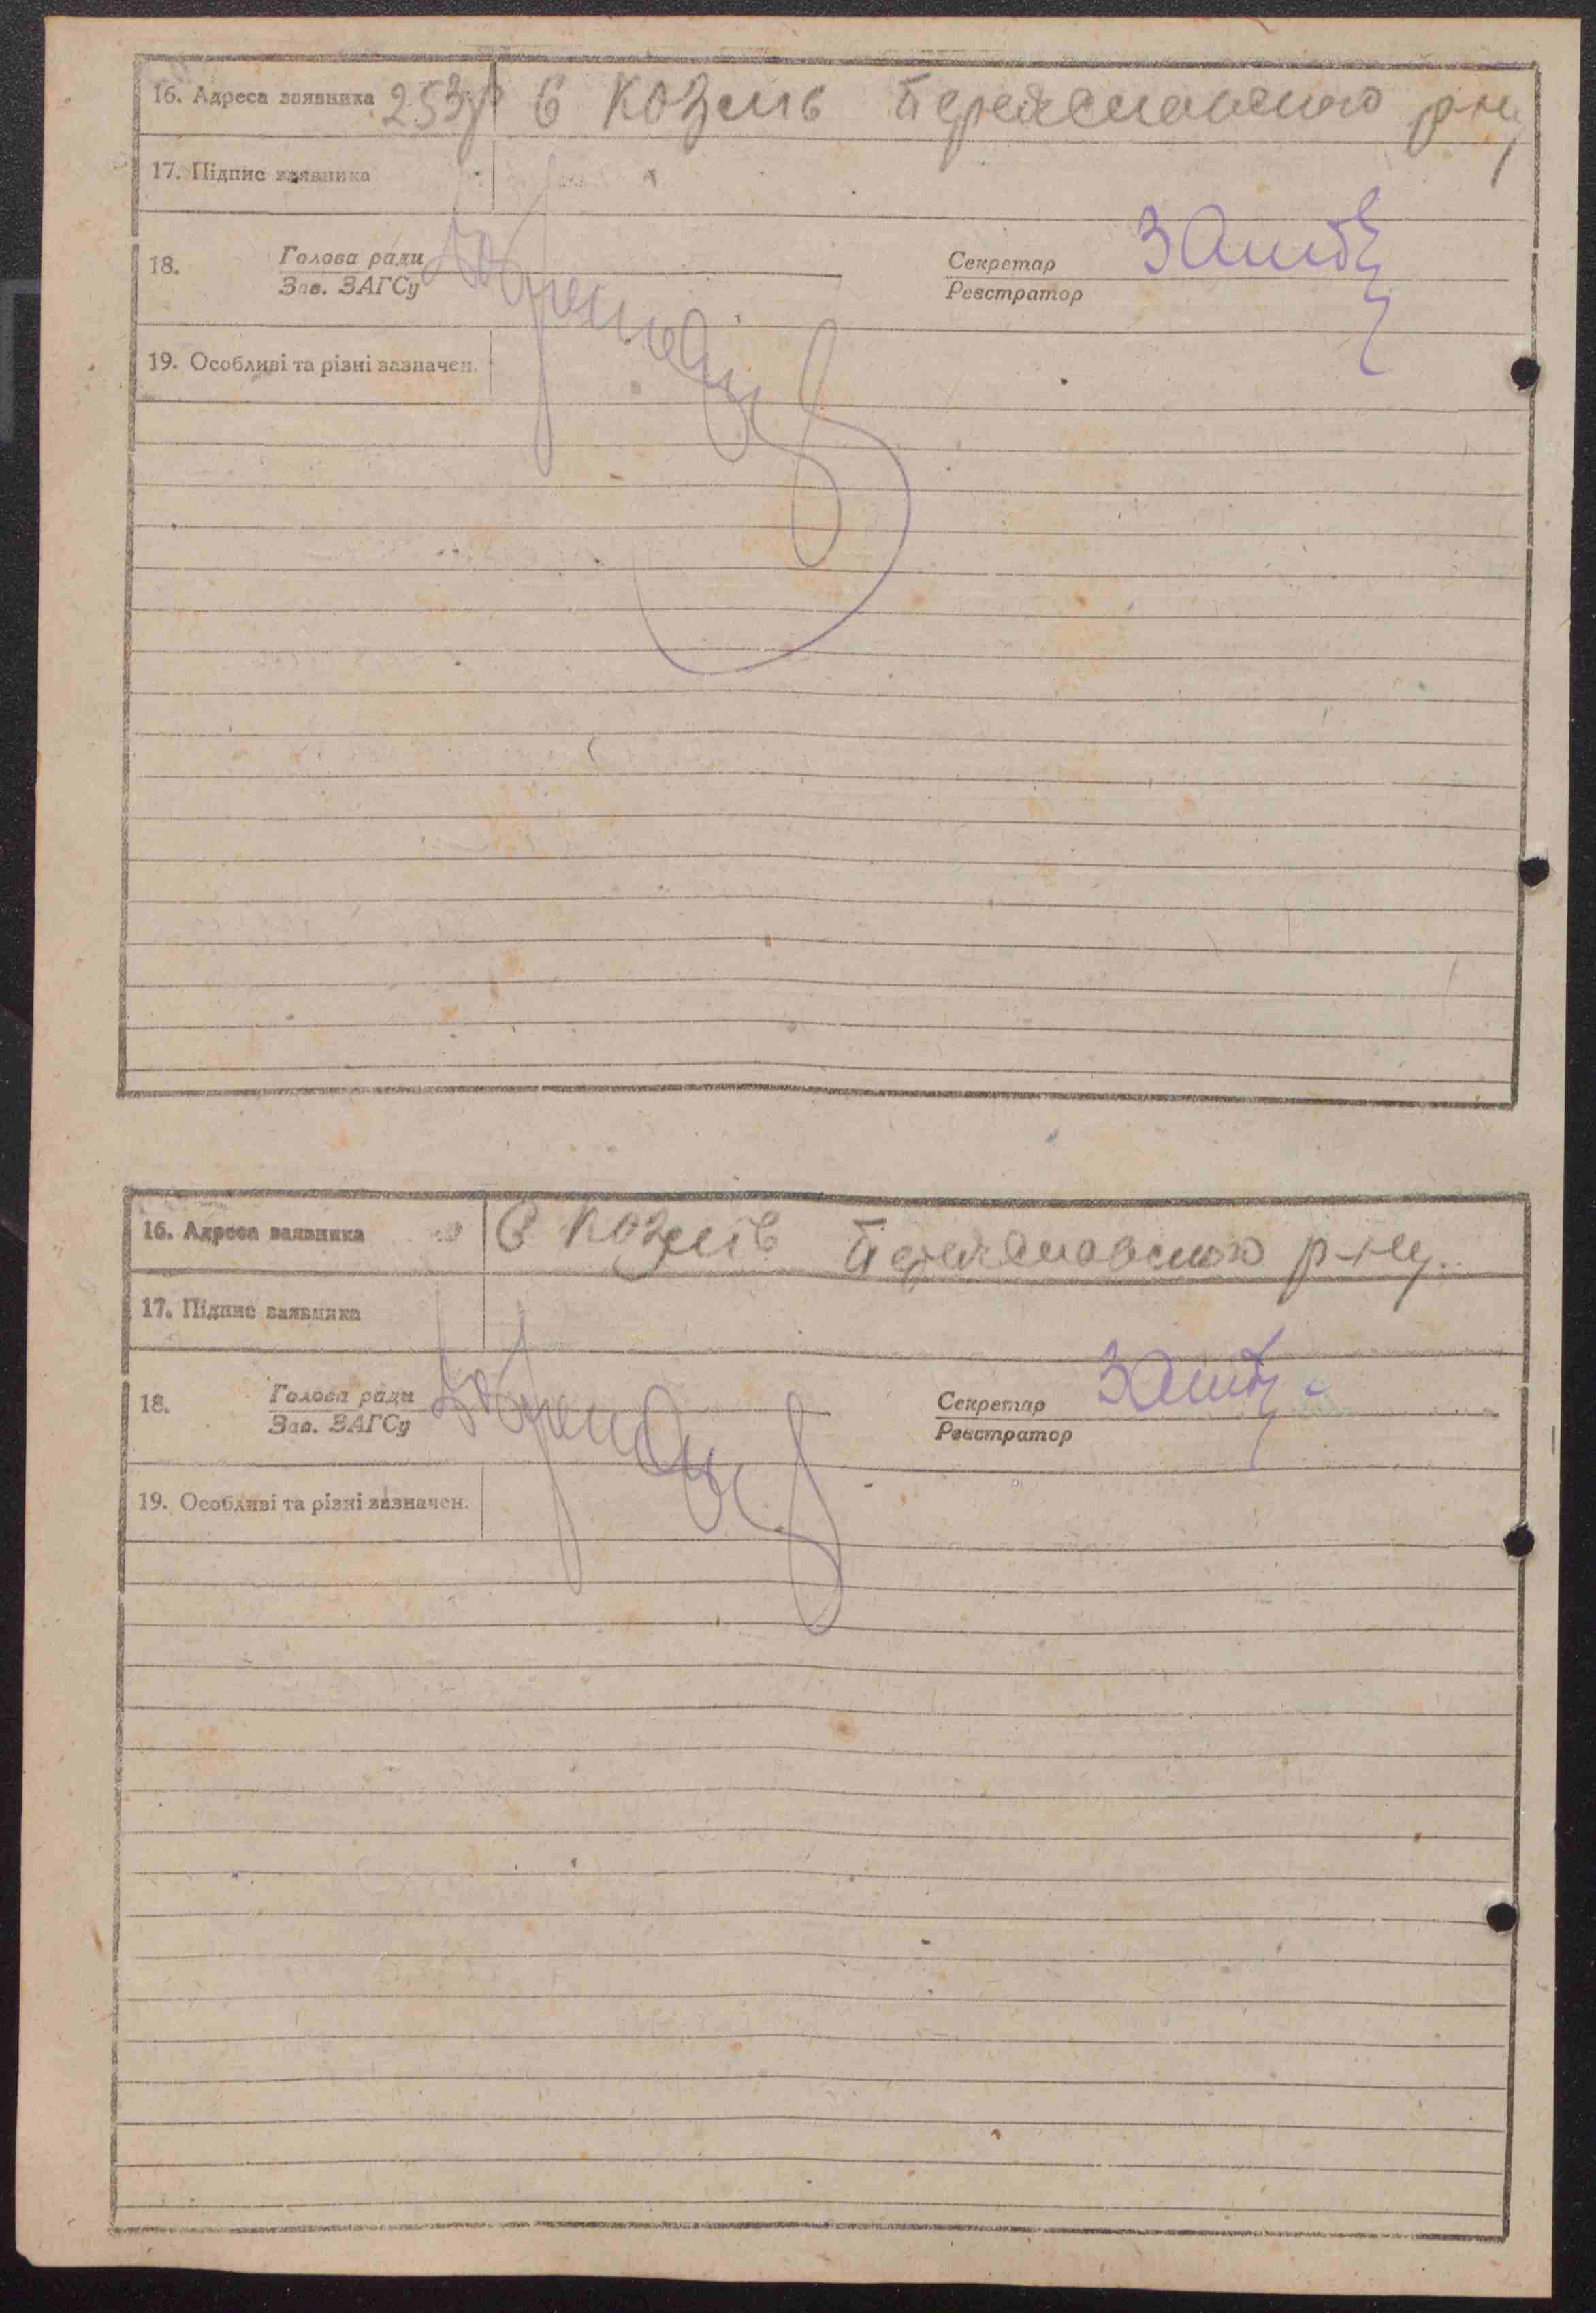 16. Адреса заявника 253 в Козлів Переяславського р-ну
17. Підпис заявника
18. Голова ради Секретар
Зав. ЗАГСу Реєстратор
19. Особливі та різні зазначен.
16. Адреса заявника в Козлів Переяславського р-ну.
17. Підпис заявника
18. Голова ради Секретар
Зав. ЗАГСу Реєстратор
19. Особливі та різні зазначен.